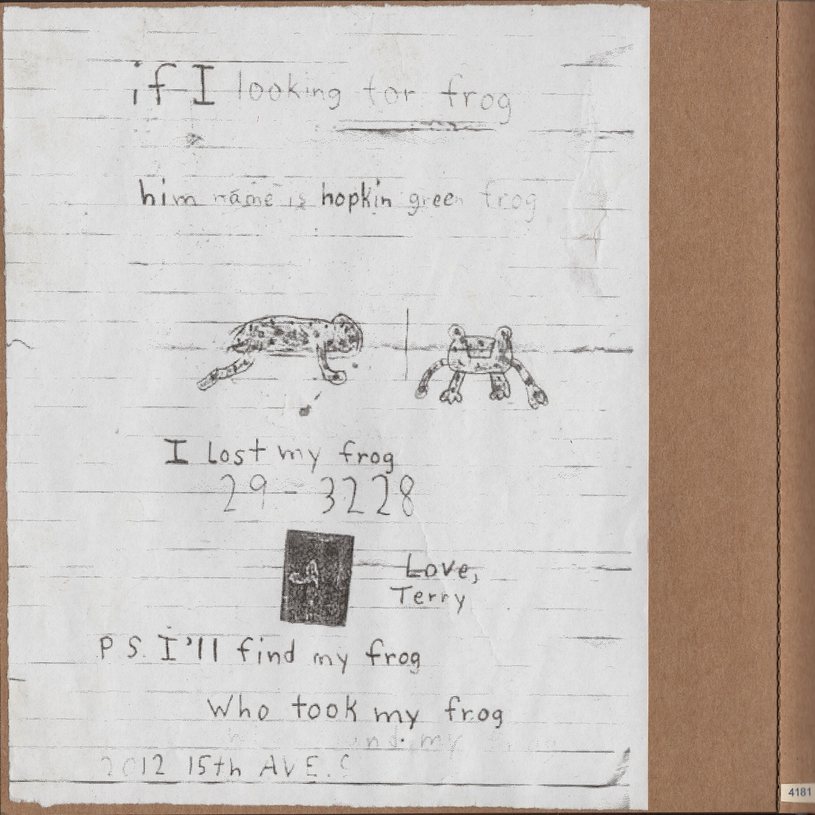 if I looking for frog
him name is hopkin green frog
I lost my frog
29-3228
Love,
Terry
P S. I'll find my frog
Who took my frog
2012 15th AVE. S
4181